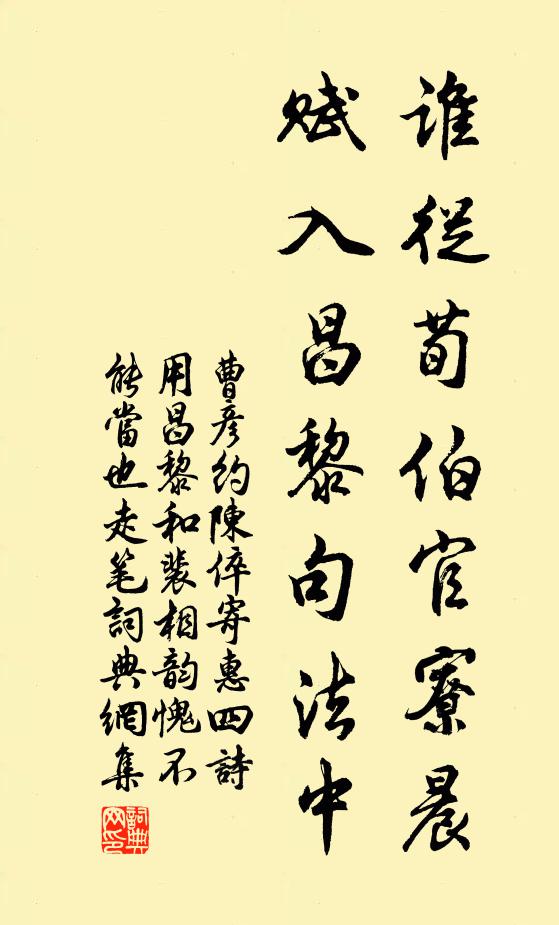 誰從荀伯官寮晨
賦入昌黎句法中
曹彥約陳倅寄惠四詩
用昌黎和裴相韵愧不
能當也走笔詞典網集
詞典
网印